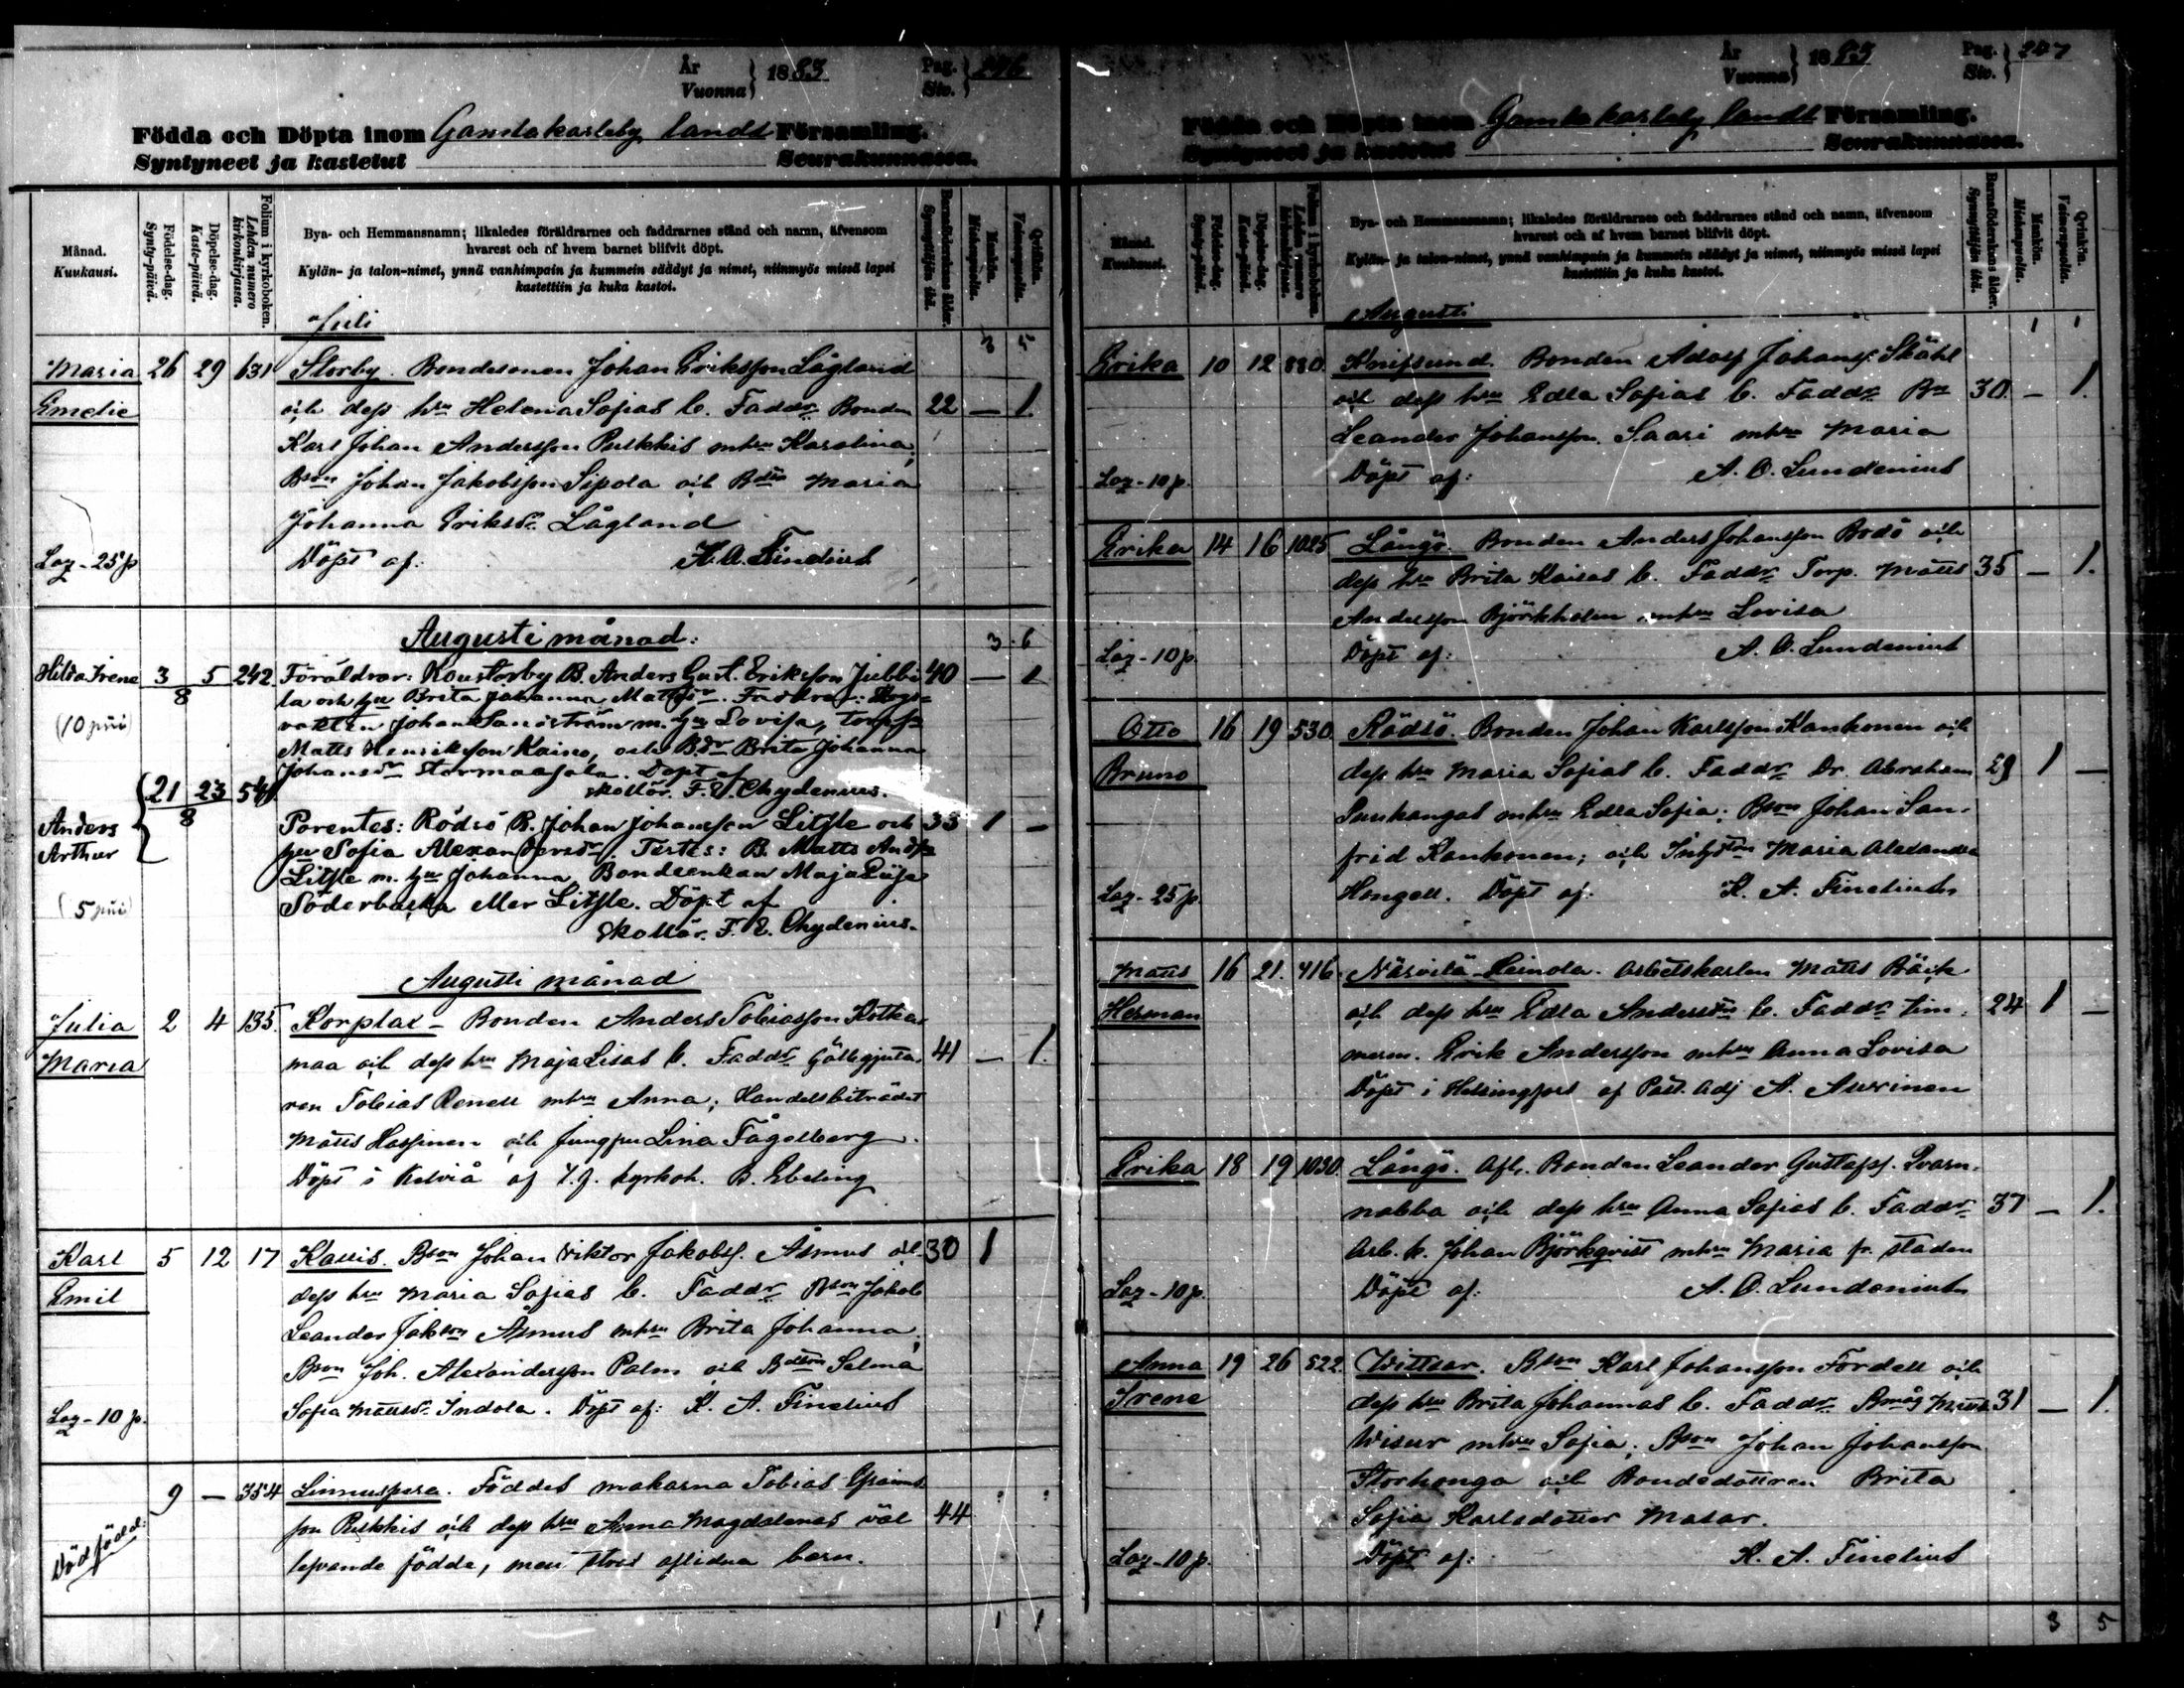 År
Vuonna } 1883
Pag.
Siv. } 246
Födda och Döpta inom Gamlakarleby landt Församling.
Syntyneet ja kastetut Seurakunnassa.
Månad.
Kuukausi.
Födelse-dag.
Synty-päivä.
Döpelse-dag.
Kaste-päivä.
Folium i kyrkoboken.
Lehden numero kirkonkirjassa.
Bya- och Hemmansnamn; likaledes föräldrarnes och faddrarnes stånd och namn, äfvensom
hvarest och af hvem barnet blifvit döpt.
Kylän- ja talon-nimet, ynnä vanhimpain ja kummein säädyt ja nimet, niinmyös missä lapsi
kastettiin ja kuka kastoi.
Barnaföderskans ålder.
Synnyttäjän ikä.
Mankön.
Miehenpuolia.
Qvinkön.
Vaimonpuolia.
Juli
3 5
Maria 26 29 631 Storby. Bondesonen Johan Eriksson Lågland
Emelie och dess hu Helena Sofias b. Faddr Bonden 22 — 1.
Karl Johan Andersson Pukkis mhu Karolina;
Bson Johan Jakobsson Sipola och Bdr Maria
Johanna Eriksdr Lågland
Laz - 25 p Döpt af: K. A. Finelius
Augusti månad: 3 6
Hilda Irene 3 5 242 Föräldrar: Koustarby B. Anders Gust. Eriksson Jubbi- 40 — 1
8 la och hu Brita Johanna Mattsdr. Faddrar:
(10 pni) vakten Johan Sandström m. hu Lovisa,
Matts Henriksson Kaino, och Bdr Brita Johanna
Johansdr Stormaasala. Döpt af
21 23 541 skollär. F. E. Chydenius.
Anders 8 Parentes: Rödsö B. Johan Johansson Litsle och 33 1 —
Arthur hu Sofia Alexandersdr Testes: B. Matts Ands
Litsle m. hu Johanna, Bondeenkan Maja Lisa
(5 pni) Söderbacka eller Litsle. Döpt af
Skollär. F. E. Chydenius.
Augusti månad
Julia 2 4 135. Korplax – Bonden Anders Tobiasson Kotka-
Maria maa och dess hu Maja Lisas b. Faddr Gälbgjuta- 41 — 1.
ren Tobias Renell mhu Anna; Handelsbiträdet
Matts Hassinen och Jungfru Lina Fågelberg.
Döpt i Kelviå af t.f. kyrkoh. B. Ebeling
Karl 5 12 17 Kallis. Bson Johan Viktor Jakobss. Åsmus och 30 1
Emil dess hu Maria Sofias b. Faddr Bson Jakob
Leander Jakson Åsmus mhu Brita Johanna;
Bson Joh. Alexandersson Palm och Bdtren Selma
Laz - 10 p. Sofia Mattsdr Indola. Döpt af: K. A. Finelius
Dödfödd: 9 — 354 Linnuspera. Föddes makarna Tobias
son Pukkis och dess hu Anna Magdalenas väl 44
lefvande födda, men strax aflidna barn.
1 1
År
Vuonna } 1883
Pag.
Siv. } 247
Födda och Döpta inom Gamlakarleby landt Församling.
Syntyneet ja kastetut Seurakunnassa.
Månad.
Kuukausi.
Födelse-dag.
Synty-päivä.
Döpelse-dag.
Kaste-päivä.
Folium i kyrkoboken.
Lehden numero kirkonkirjassa.
Bya- och Hemmansnamn; likaledes föräldrarnes och faddrarnes stånd och namn, äfvensom
hvarest och af hvem barnet blifvit döpt.
Kylän- ja talon-nimet, ynnä vanhimpain ja kummein säädyt ja nimet, niinmyös missä lapsi
kastettiin ja kuka kastoi.
Barnaföderskans ålder.
Synnyttäjän ikä.
Mankön.
Miehenpuolia.
Qvinkön.
Vaimonpuolia.
Augusti
1 1
Erika 10 12 880. Knifsund. Bonden Adolf Johanss. Skåhl
och dess hu Edla Sofias b. Faddr Bn 30. — 1.
Leander Johansson Saari mhu Maria
Laz - 10 p. Döpt af: A. O. Lundenius
Erika 14 16 1025 Långö. Bonden Anders Johansson Bodö och
dess hu Brita Kaisas b. Faddr Torp. Matts 35 — 1.
Andersson Björkholm mhu Lovisa
Laz - 10 p. Döpt af: A. O. Lundenius
Otto 16 19 530 Rödsö. Bonden Johan Karlsson Kankonen och
Bruno dess hu Maria Sofias b. Faddr Dr. Abraham 29 1 —
Punkangas mhu Edla Sofia; Bson Johan San-
frid Kankonen; och Maria Alexandra
Laz - 25 p. Hongell. Döpt af: K. A. Finelius
Matts 16 21. 416. Närvilä – Heinola. Arbetskarlen Matts Bäck
Herman och dess hu Edla Andersdrs b. Faddr tim- 24 1 —
merm. Erik Andersson mhu Anna Lovisa
Döpt i Helsingfors af Past. Adj A. Auvinen
Erika 18 19 1030. Långö. Afl. Bonden Leander Gustafss. Qvarn-
nabba och dess hu Anna Sofias b. Faddr 37 — 1.
Arb. k. Johan Björkqvist mhu Maria fr. staden
Laz - 10 p. Döpt af: A. O. Lundenius
Anna 19 26 522. Wittsar. Bson Karl Johansson Fordell och
Irene dess hu Brita Johannas b. Faddr Bmåg Matts 31 — 1.
Wisur mhu Sofia; Bson Johan Johansson
Storhonga och Bondedottren Brita
Sofia Karlsdotter Masar.
Laz - 10 p. Döpt af: K. A. Finelius
3 5